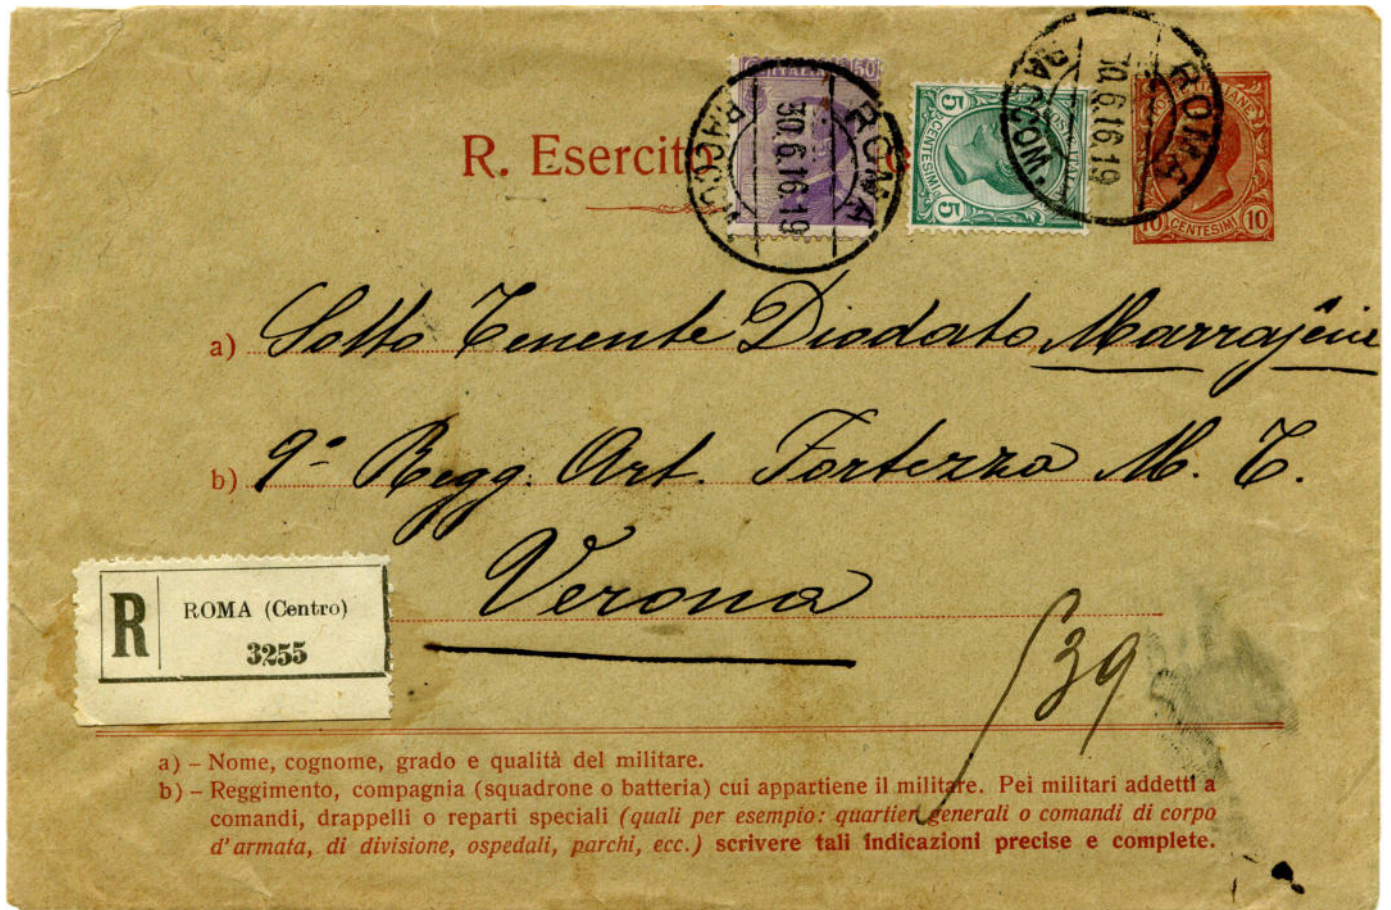 ITALIANE 50
ROMA
RACCOM.
30.6.16.19
5 CENTESIMI 5
POSTE ITALIANE
ROMA
RACCOM.
30.6.16.19
POSTE ITALIANE
10 CENTESIMI 10
R. Esercito
a) Sotto Tenente Diodato
b) 9º Regg. Art. Fortezza M. T.
Verona
R ROMA (Centro)
3255
39
a) – Nome, cognome, grado e qualità del militare.
b) – Reggimento, compagnia (squadrone o batteria) cui appartiene il militare. Pei militari addetti a
comandi, drappelli o reparti speciali (quali per esempio: quartier generali o comandi di corpo
d'armata, di divisione, ospedali, parchi, ecc.) scrivere tali indicazioni precise e complete.